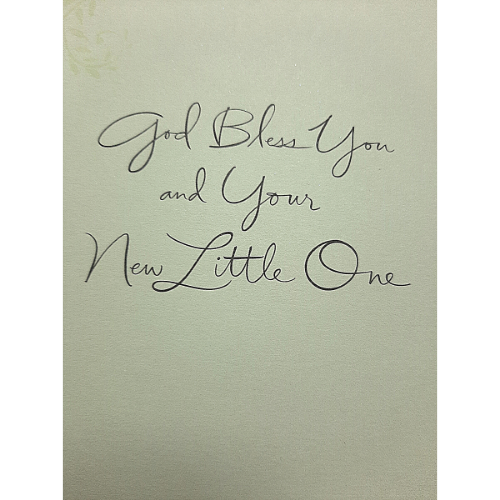 God Bless You
and Your
New Little One